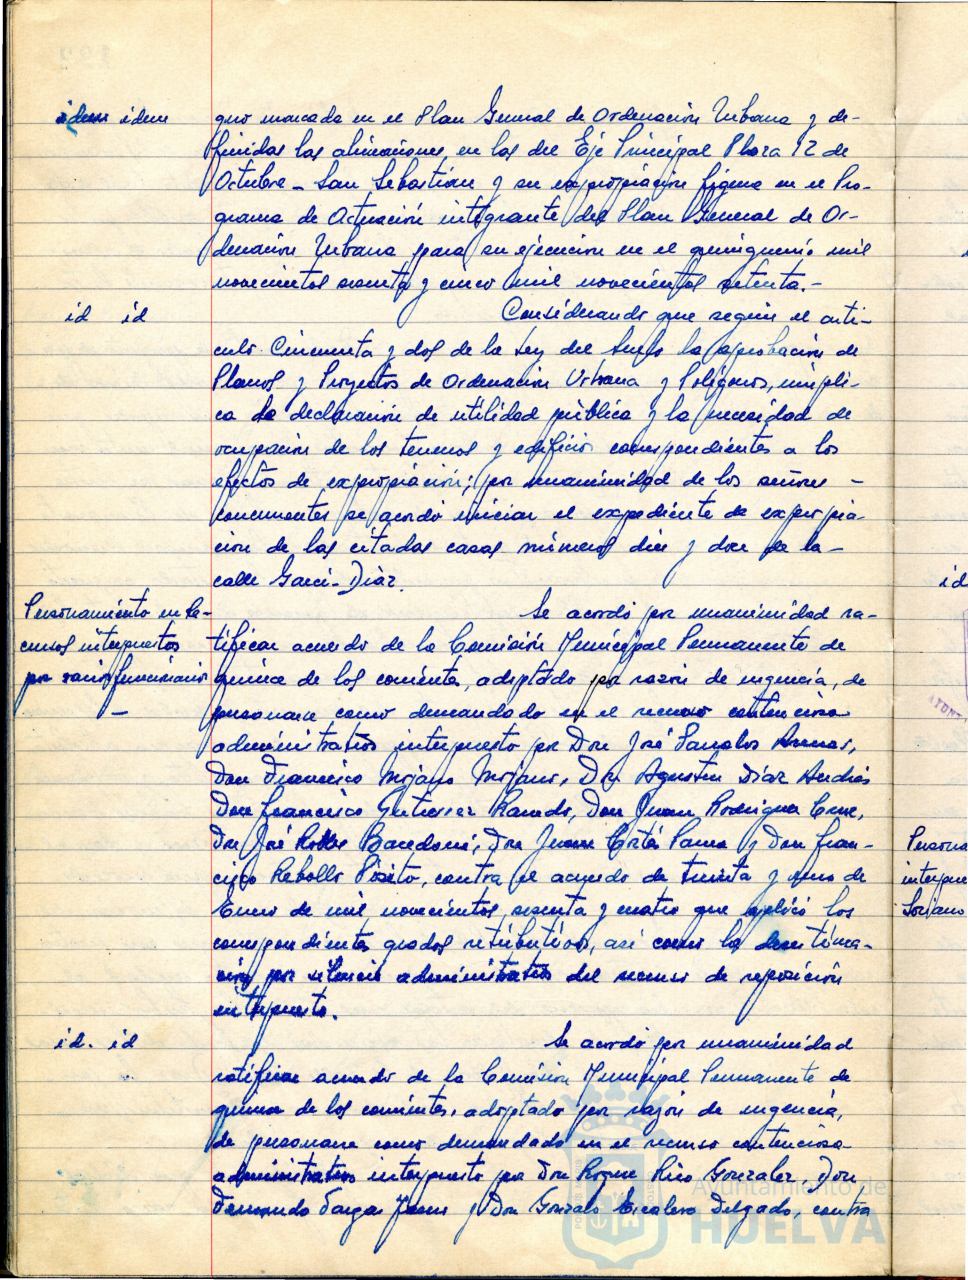 idem idem
que marcada en el Plan General de Ordenación Urbana y de-
finidas las alineaciones en las del Eje Principal Plaza 12 de
Octubre - San Sebastián y su expropiación figura en el Pro-
grama de Actuación integrante del Plan General de Or-
denación Urbana para su ejecución en el quinquenio mil
novecientos sesenta y cinco mil novecientos setenta.-
id id
Considerando que según el artí-
culo Cincuenta y dos de la Ley del Suelo la aprobación de
Planos y Proyectos de Ordenación Urbana y Polígonos, impli-
ca la declaración de utilidad pública y la necesidad de
ocupación de los terrenos y edificios correspondientes a los
efectos de expropiación; por unanimidad de los señores -
concurrentes se acordó iniciar el expediente de expropia-
ción de las citadas casas números diez y doce de la -
calle Garci-Díaz.
Personamiento en re-
cursos interpuestos
por varios funcionarios
-
Se acordó por unanimidad ra-
tificar acuerdo de la Comisión Municipal Permanente de
quince de los corrientes, adoptado por razón de urgencia, de
personarse como demandado en el recurso contencioso
administrativo interpuesto por Don José Arenas,
Don Francisco Mojano Mojano, Don Agustín Díaz Andrés
Don Francisco Gutierrez Don Juan Rodriguez Cruz,
Don José Robles Don Juan Cortés Parra y Don Fran-
cisco Rebollo contra el acuerdo de treinta y uno de
Enero de mil novecientos sesenta y cuatro que aplicó los
correspondientes grados retributivos, así como la desestima-
ción por silencio administrativo del recurso de reposición
interpuesto.
id. id
Se acordó por unanimidad
ratificar acuerdo de la Comisión Municipal Permanente de
quince de los corrientes, adoptado por razón de urgencia,
de personarse como demandado en el recurso contencioso
administrativo interpuesto por Don Roque Rico Gonzalez, Don
Fernando Vargas y Don Gonzalo Delgado, contra
id
Persona
interpue
Soriano
Ayuntamiento de
HUELVA